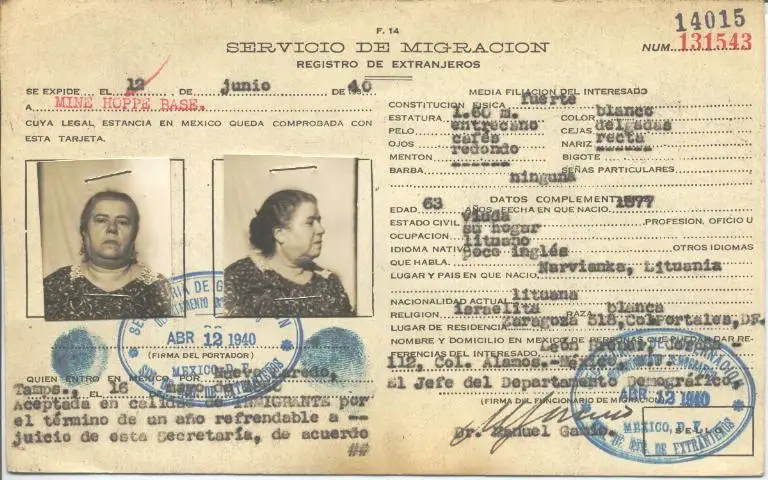 F. 14
14015
SERVICIO DE MIGRACION
NUM. 131543
REGISTRO DE EXTRANJEROS
SE EXPIDE EL 12 DE junio DE 40
A MINE HOPPE BASE.
CUYA LEGAL ESTANCIA EN MEXICO QUEDA COMPROBADA CON
ESTA TARJETA.
ABR 12 1940
(FIRMA DEL PORTADOR)
MEXICO, D. F.
QUIEN ENTRO EN MEXICO POR
Tamps., EL 16
Aceptada en calidad de INMIGRANTE por
el término de un año refrendable a --
juicio de esta Secretaría, de acuerdo
##
MEDIA FILIACION DEL INTERESADO
CONSTITUCION FISICA fuerte
ESTATURA 1.60 m. COLOR blanco
PELO entrecano CEJAS delgadas
OJOS cafés NARIZ recta
MENTON redondo BIGOTE ------
BARBA ------ SEÑAS PARTICULARES
ninguna
DATOS COMPLEMENT
EDAD 63 AÑOS. FECHA EN QUE NACIO. 1877
ESTADO CIVIL viuda PROFESION, OFICIO U
OCUPACION su hogar
IDIOMA NATIVO lituano OTROS IDIOMAS
QUE HABLA. poco inglés
LUGAR Y PAIS EN QUE NACIO. Narvianka, Lituania
NACIONALIDAD ACTUAL lituana
RELIGION israelita RAZA blanca
LUGAR DE RESIDENCIA Zaragoza 518, Col Portales, DF.
NOMBRE Y DOMICILIO EN MEXICO DE PERSONAS QUE PUEDAN DAR RE-
FERENCIAS DEL INTERESADO. León
112, Col. Alamos.-México,
El Jefe del Departamento Demográfico,
(FIRMA DEL FUNCIONARIO DE MIGRACION)
ABR 12 1940
MEXICO, D. F.
SELLO
Dr. Manuel Gamio.